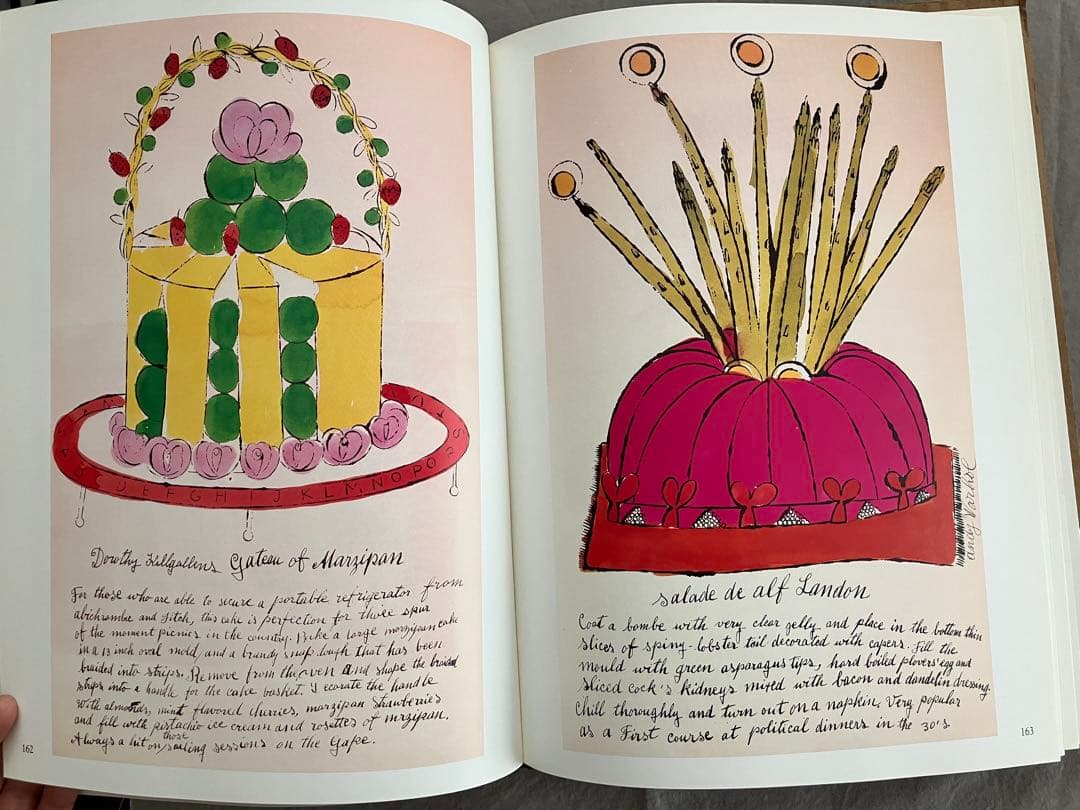 Dorothy Killgallens Gateau of Marzipan
For those who are able to secure a portable refrigerator from
abichrombe and Fitch, this cake is perfection for those spur
of the moment picnics in the country. Bake a large marzipan cake
in a 13 inch oval mold, and a brandy snap dough that has been
braided into strips. Remove from the oven and shape the braided
strips into a handle for the cake basket. Decorate the handle
with almonds, mint flavored cherries, marzipan strawberries
and fill with pistachio ice cream and rosettes of mrzipan.
Always a hit on those sailing sessions on the Gape.
162
C D E F G H I J K L M N O P Q R S T U V W
andy Warhol
salade de alf Landon
Coat a bombe with very clear gelly and place in the bottom thin
slices of spiny-lobster tail decorated with capers. Fill the
mould with green asparagus tips, hard boiled plovers' egg and
sliced cock's kidneys mixed with bacon and dandelin dressing.
Chill thoroughly and turn out on a napkin. Very popular
as a First course at political dinners in the 30's.
163